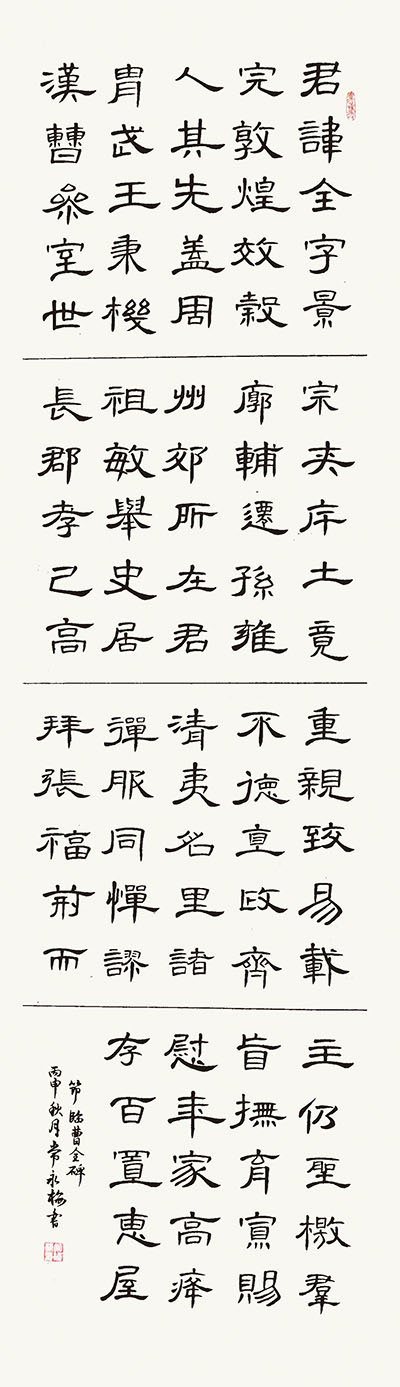 君諱全字景
完敦煌效穀
人其先蓋周
胄武王秉機
漢曹參室世
宗夾斥土竟
廓輔遷孫雍
州郊所在君
祖敏舉史居
長郡孝己高
重親致易載
不德直政齊
清夷名里諸
彈服同憚謬
拜張福荊而
主仍聖檄羣
旨撫育賓賜
慰年家高瘁
存百置惠屋
節臨曹全碑
丙申秋月常永梅書